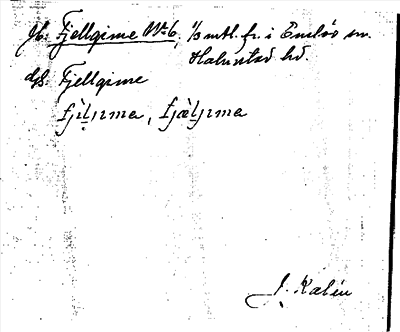 Jb. Fjellgime № 6, 1/8 mtl. fr. i Enslöv sn.
Halmstad hd.
djb. Fjellgime
fjìl̥ɟɪma, fjæ̀l̥ɟɪma
J. Kalén